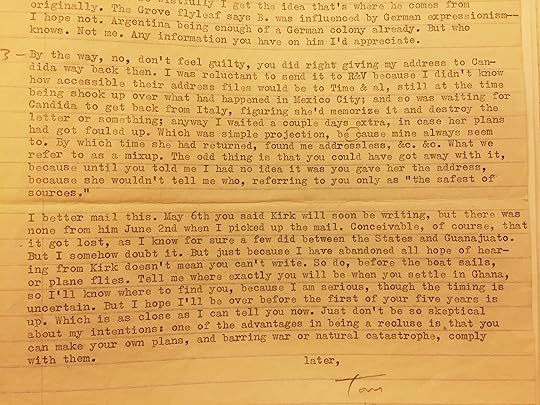 I get the idea that's where he comes from
originally. The Grove flyleaf says B. was influenced by German expressionism--
I hope not. Argentina being enough of a German colony already. But who
knows. Not me. Any information you have on him I'd appreciate.
3 - By the way, no, don't feel guilty, you did right giving my address to Can-
dida way back then. I was reluctant to send it to R&V because I didn't know
how accessible their address files would be to Time & al, still at the time
being shook up over what had happened in Mexico City; and so was waiting for
Candida to get back from Italy, figuring she'd memorize it and destroy the
letter or something; anyway I waited a couple days extra, in case her plans
had got fouled up. Which was simple projection, be cause mine always seem
to. By which time she had returned, found me addressless, &c. &c. What we
refer to as a mixup. The odd thing is that you could have got away with it,
because until you told me I had no idea it was you gave her the address,
because she wouldn't tell me who, referring to you only as "the safest of
sources."
I better mail this. May 6th you said Kirk will soon be writing, but there was
none from him June 2nd when I picked up the mail. Conceivable, of course, that
it got lost, as I know for sure a few did between the States and Guanajuato.
But I somehow doubt it. But just because I have abandoned all hope of hear-
ing from Kirk doesn't mean you can't write. So do, before the boat sails,
or plane flies. Tell me where exactly you will be when you settle in Ghana,
so I'll know where to find you, because I am serious, though the timing is
uncertain. But I hope I'll be over before the first of your five years is
up. Which is as close as I can tell you now. Just don't be so skeptical
about my intentions: one of the advantages in being a recluse is that you
can make your own plans, and barring war or natural catastrophe, comply
with them. later,
Tom